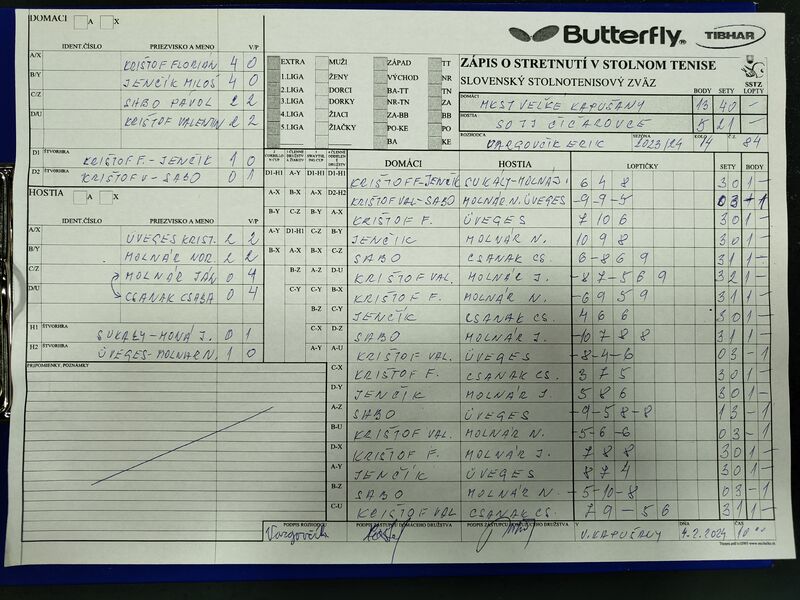 DOMÁCI A X
Butterfly® TIBHAR
IDENT.ČÍSLO PRIEZVISKO A MENO V/P
A/X KRIŠTOF FLORIAN 4 0
B/Y JENČÍK MILOŠ 4 0
C/Z SABO PAVOL 2 2
D/U KRIŠTOF VALENTIN 2 2
D1 ŠTVORHRA KRIŠTOF F. - JENČÍK 1 0
D2 ŠTVORHRA KRIŠTOF V - SABO 0 1
HOSTIA A X
IDENT.ČÍSLO PRIEZVISKO A MENO V/P
A/X ÜVEGES KRIST. 2 2
B/Y MOLNÁR NOR. 2 2
C/Z MOLNÁR JÁN 0 4
D/U CSANAK CSABA 0 4
H1 ŠTVORHRA 0 1
H2 ŠTVORHRA ÜVEGES-MOLNÁR N. 1 0
PRIPOMIENKY, POZNÁMKY
EXTRA MUŽI ZÁPAD TT
1.LIGA ŽENY VÝCHOD NR
2.LIGA DORCI BA-TT ZA
3.LIGA DORKY NR-TN ZA
4.LIGA ŽIACI ZA-BB BB
5.LIGA ŽIAČKY PO-KE PO
BA KE
ZÁPIS O STRETNUTÍ V STOLNOM TENISE
SLOVENSKÝ STOLNOTENISOVÝ ZVÄZ
SSTZ
BODY SETY LOPTY
DOMÁCI MKST VEĽKÉ KAPUŠANY 13 40 -
HOSTIA SOTJ ČIČAROVCE 5 21 -
ROZHODCA VARGOVČÍK ERIK SEZÓNA 2023/24 KOLO 14 Č.Z. 84
DOMÁCI HOSTIA LOPTIČKY SETY BODY
D1-H1 A-Y D1-H1 D1-H1 KRIŠTOF F-JENČÍK SUKALY-MOLNÁJ 6 4 8 3 0 1 -
A-X B-X A-X D2-H2 KRIŠTOF VAL-SABO MOLNÁR N. ÜVEGES -9 -9 -5 0 3 - 1
B-Y C-Z B-Y A-X KRIŠTOF F. ÜVEGES 7 10 6 3 0 1 -
A-Y D1-H1 C-Z B-Y JENČÍK MOLNÁR N. 10 9 8 3 0 1 -
B-X A-X C-Z SABO CSANAK CS. 6 -8 6 9 3 1 1 -
B-Z A-Z D-U KRIŠTOF VAL. MOLNÁR J. -8 7 -5 6 9 3 2 1 -
C-Y C-Y B-X KRIŠTOF F. MOLNÁR N. -6 9 5 9 3 1 1 -
B-Z C-Y JENČÍK CSANAK CS. 4 6 6 3 0 1 -
C-X D-Z SABO MOLNÁR J. -10 7 8 8 3 1 1 -
A-Y A-U KRIŠTOF VAL. ÜVEGES -8 -4 -6 0 3 - 1
C-X KRIŠTOF F. CSANAK CS. 3 7 5 3 0 1 -
D-Y JENČÍK MOLNÁR J. 5 8 6 3 0 1 -
A-Z SABO ÜVEGES -9 -5 8 -8 1 3 - 1
B-U KRIŠTOF VAL. MOLNÁR N. -5 -6 -6 0 3 - 1
D-X KRIŠTOF F. MOLNÁR J. 7 8 8 3 0 1 -
A-Y JENČÍK ÜVEGES 8 7 4 3 0 1 -
B-Z SABO MOLNÁR N. -5 -10 -8 0 3 - 1
C-U KRIŠTOF VAL CSANAK CS. 7 9 -5 6 3 1 1 -
PODPIS ROZHODCU PODPIS ZÁSTUPCU DOMÁCEHO DRUŽSTVA PODPIS ZÁSTUPCU HOSTÍ V DŇA ČAS
Vargovčík V. KAPUŠANY 4.2.2024 10:00